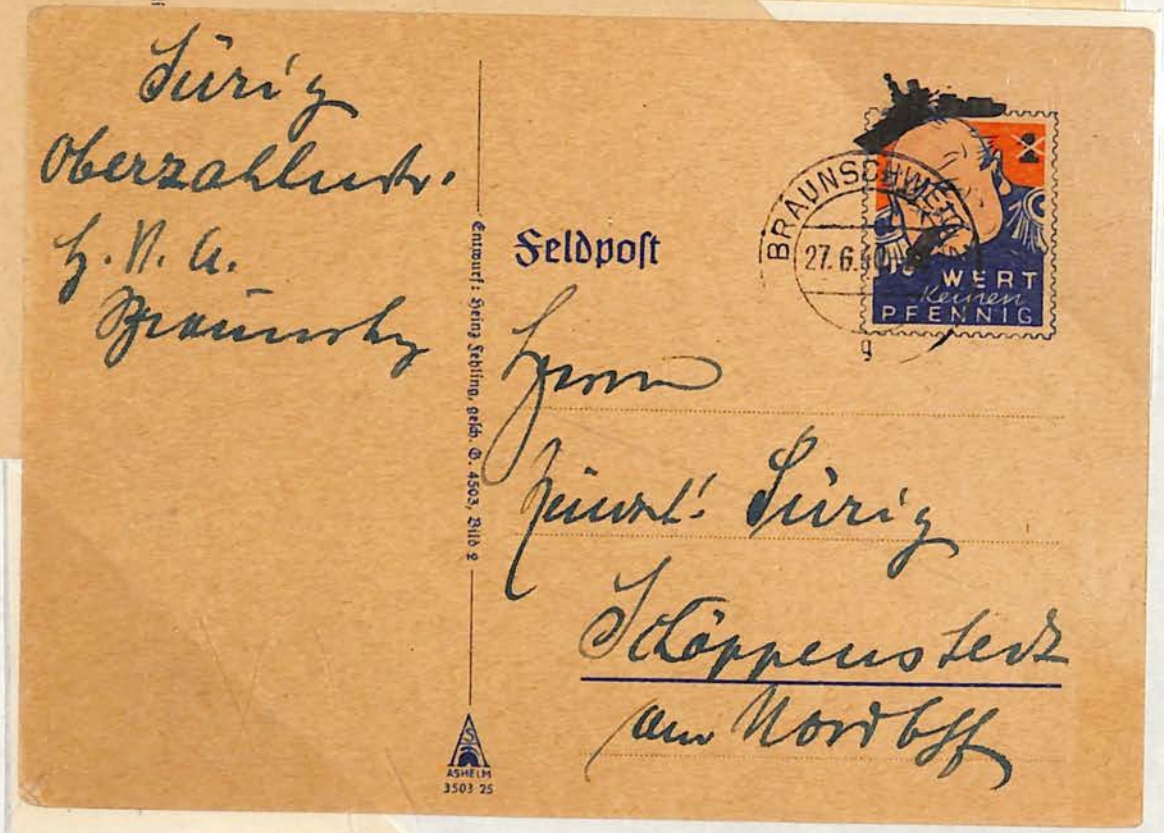 Sürig
Oberzahlmstr.
H.V.A.
Braunschg
Entwurf: Heinz Fehling, gesch. G. 4503, Bild 2
ASHELM
3503 25
Feldpost
BRAUNSCHWEIG
27.6.40
g
WERT
keinen
PFENNIG
Herrn
Sürig
Schöppenstedt
am Nordbhf